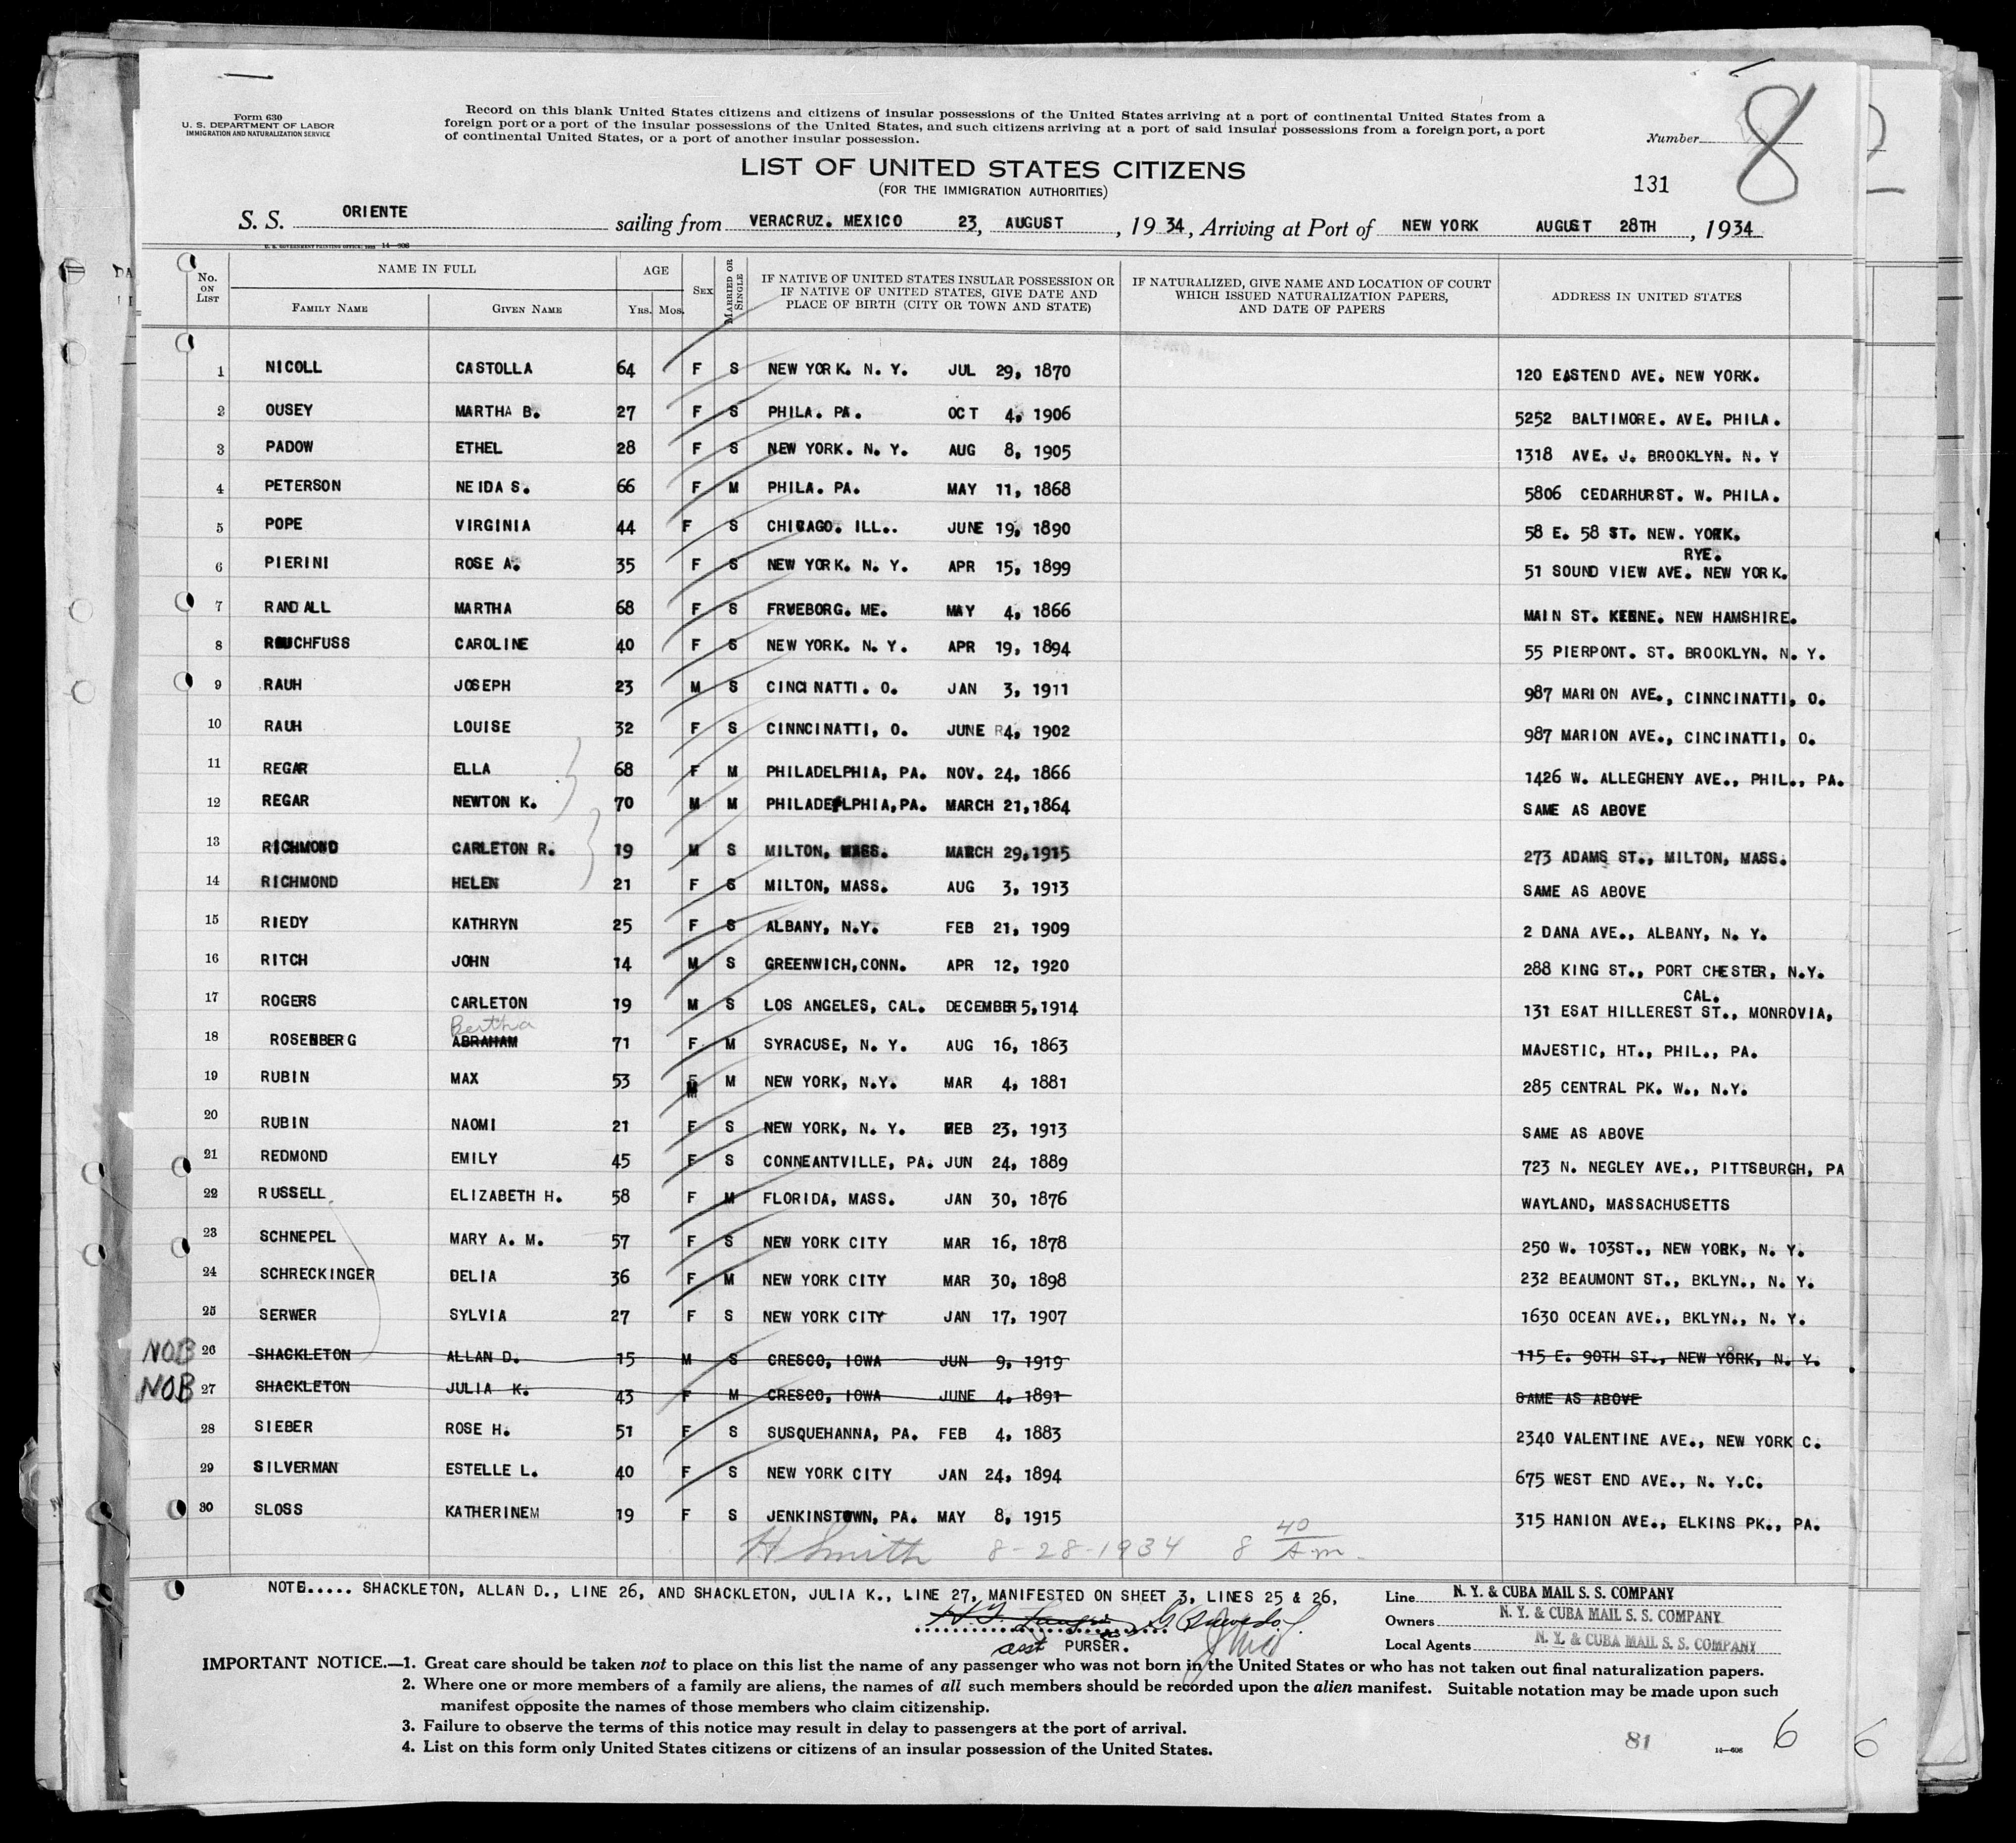 Form 630
U. S. DEPARTMENT OF LABOR
IMMIGRATION AND NATURALIZATION SERVICE
Record on this blank United States citizens and citizens of insular possessions of the United States arriving at a port of continental United States from a
foreign port or a port of the insular possessions of the United States, and such citizens arriving at a port of said insular possessions from a foreign port, a port
of continental United States, or a port of another insular possession.
Number 8
LIST OF UNITED STATES CITIZENS
(FOR THE IMMIGRATION AUTHORITIES)
131
S. S. ORIENTE sailing from VERACRUZ. MEXICO 23, AUGUST, 1934, Arriving at Port of NEW YORK AUGUST 28TH, 1934
No. ON LIST NAME IN FULL FAMILY NAME GIVEN NAME AGE YRS. MOS. SEX MARRIED OR SINGLE IF NATIVE OF UNITED STATES INSULAR POSSESSION OR IF NATIVE OF UNITED STATES, GIVE DATE AND PLACE OF BIRTH (CITY OR TOWN AND STATE) IF NATURALIZED, GIVE NAME AND LOCATION OF COURT WHICH ISSUED NATURALIZATION PAPERS, AND DATE OF PAPERS ADDRESS IN UNITED STATES
1 NICOLL CASTOLLA 64 F S NEW YORK. N. Y. JUL 29, 1870 120 EASTEND AVE. NEW YORK.
2 OUSEY MARTHA B. 27 F S PHILA. PA. OCT 4, 1906 5252 BALTIMORE. AVE. PHILA.
3 PADOW ETHEL 28 F S NEW YORK. N. Y. AUG 8, 1905 1318 AVE. J. BROOKLYN. N. Y
4 PETERSON NEIDA S. 66 F M PHILA. PA. MAY 11, 1868 5806 CEDARHURST. W. PHILA.
5 POPE VIRGINIA 44 F S CHICAGO. ILL.. JUNE 19, 1890 58 E. 58 ST. NEW. YORK.
6 PIERINI ROSE A. 35 F S NEW YORK. N. Y. APR 15, 1899 51 SOUND VIEW AVE. RYE. NEW YORK.
7 RANDALL MARTHA 68 F S FRUEBORG. ME. MAY 4, 1866 MAIN ST. KEENE. NEW HAMSHIRE.
8 ROUCHFUSS CAROLINE 40 F S NEW YORK. N. Y. APR 19, 1894 55 PIERPONT. ST. BROOKLYN. N. Y.
9 RAUH JOSEPH 23 M S CINCINATTI. O. JAN 3, 1911 987 MARION AVE., CINNCINATTI, O.
10 RAUH LOUISE 32 F S CINNCINATTI, O. JUNE 4, 1902 987 MARION AVE., CINCINATTI, O.
11 REGAR ELLA 68 F M PHILADELPHIA, PA. NOV. 24, 1866 1426 W. ALLEGHENY AVE., PHIL., PA.
12 REGAR NEWTON K. 70 M M PHILADELPHIA, PA. MARCH 21, 1864 SAME AS ABOVE
13 RICHMOND CARLETON R. 19 M S MILTON, MASS. MARCH 29, 1915 273 ADAMS ST., MILTON, MASS.
14 RICHMOND HELEN 21 F S MILTON, MASS. AUG 3, 1913 SAME AS ABOVE
15 RIEDY KATHRYN 25 F S ALBANY, N.Y. FEB 21, 1909 2 DANA AVE., ALBANY, N. Y.
16 RITCH JOHN 14 M S GREENWICH, CONN. APR 12, 1920 288 KING ST., PORT CHESTER, N.Y.
17 ROGERS CARLETON 19 M S LOS ANGELES, CAL. DECEMBER 5, 1914 131 ESAT HILLEREST ST., MONROVIA, CAL.
18 ROSENBERG Bertha ABRAHAM 71 F M SYRACUSE, N. Y. AUG 16, 1863 MAJESTIC, HT., PHIL., PA.
19 RUBIN MAX 53 M M NEW YORK, N.Y. MAR 4, 1881 285 CENTRAL PK. W., N.Y.
20 RUBIN NAOMI 21 F S NEW YORK, N. Y. FEB 23, 1913 SAME AS ABOVE
21 REDMOND EMILY 45 F S CONNEANTVILLE, PA. JUN 24, 1889 723 N. NEGLEY AVE., PITTSBURGH, PA
22 RUSSELL ELIZABETH H. 58 F M FLORIDA, MASS. JAN 30, 1876 WAYLAND, MASSACHUSETTS
23 SCHNEPEL MARY A. M. 57 F S NEW YORK CITY MAR 16, 1878 250 W. 103ST., NEW YORK, N. Y.
24 SCHRECKINGER DELIA 36 F M NEW YORK CITY MAR 30, 1898 232 BEAUMONT ST., BKLYN., N. Y.
25 SERWER SYLVIA 27 F S NEW YORK CITY JAN 17, 1907 1630 OCEAN AVE., BKLYN., N. Y.
NOB 26 SHACKLETON ALLAN D. 15 M S CRESCO, IOWA JUN 9, 1919 115 E. 90TH ST., NEW YORK, N. Y.
NOB 27 SHACKLETON JULIA K. 43 F M CRESCO, IOWA JUNE 4, 1891 SAME AS ABOVE
28 SIEBER ROSE H. 51 F S SUSQUEHANNA, PA. FEB 4, 1883 2340 VALENTINE AVE., NEW YORK C.
29 SILVERMAN ESTELLE L. 40 F S NEW YORK CITY JAN 24, 1894 675 WEST END AVE., N. Y.C.
30 SLOSS KATHERINEM 19 F S JENKINSTOWN, PA. MAY 8, 1915 315 HANION AVE., ELKINS PK., PA.
H Smith 8-28-1934 8 40 A.m.
NOTE..... SHACKLETON, ALLAN D., LINE 26, AND SHACKLETON, JULIA K., LINE 27, MANIFESTED ON SHEET 3, LINES 25 & 26,
asst PURSER.
Line N. Y. & CUBA MAIL S. S. COMPANY
Owners N. Y. & CUBA MAIL S. S. COMPANY
Local Agents N. Y. & CUBA MAIL S. S. COMPANY
IMPORTANT NOTICE.—1. Great care should be taken not to place on this list the name of any passenger who was not born in the United States or who has not taken out final naturalization papers.
2. Where one or more members of a family are aliens, the names of all such members should be recorded upon the alien manifest. Suitable notation may be made upon such
manifest opposite the names of those members who claim citizenship.
3. Failure to observe the terms of this notice may result in delay to passengers at the port of arrival.
4. List on this form only United States citizens or citizens of an insular possession of the United States.
81 14—608 6 6